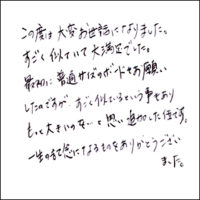 この度は大変お世話になりました。
すごく似ていて大満足でした。
最初に普通サイズのボードをお願い
したのですが すごく似ているという事もあり
もっと大きいのをと思い追加した位です。
一生の記念になるものをありがとうござい
ました。